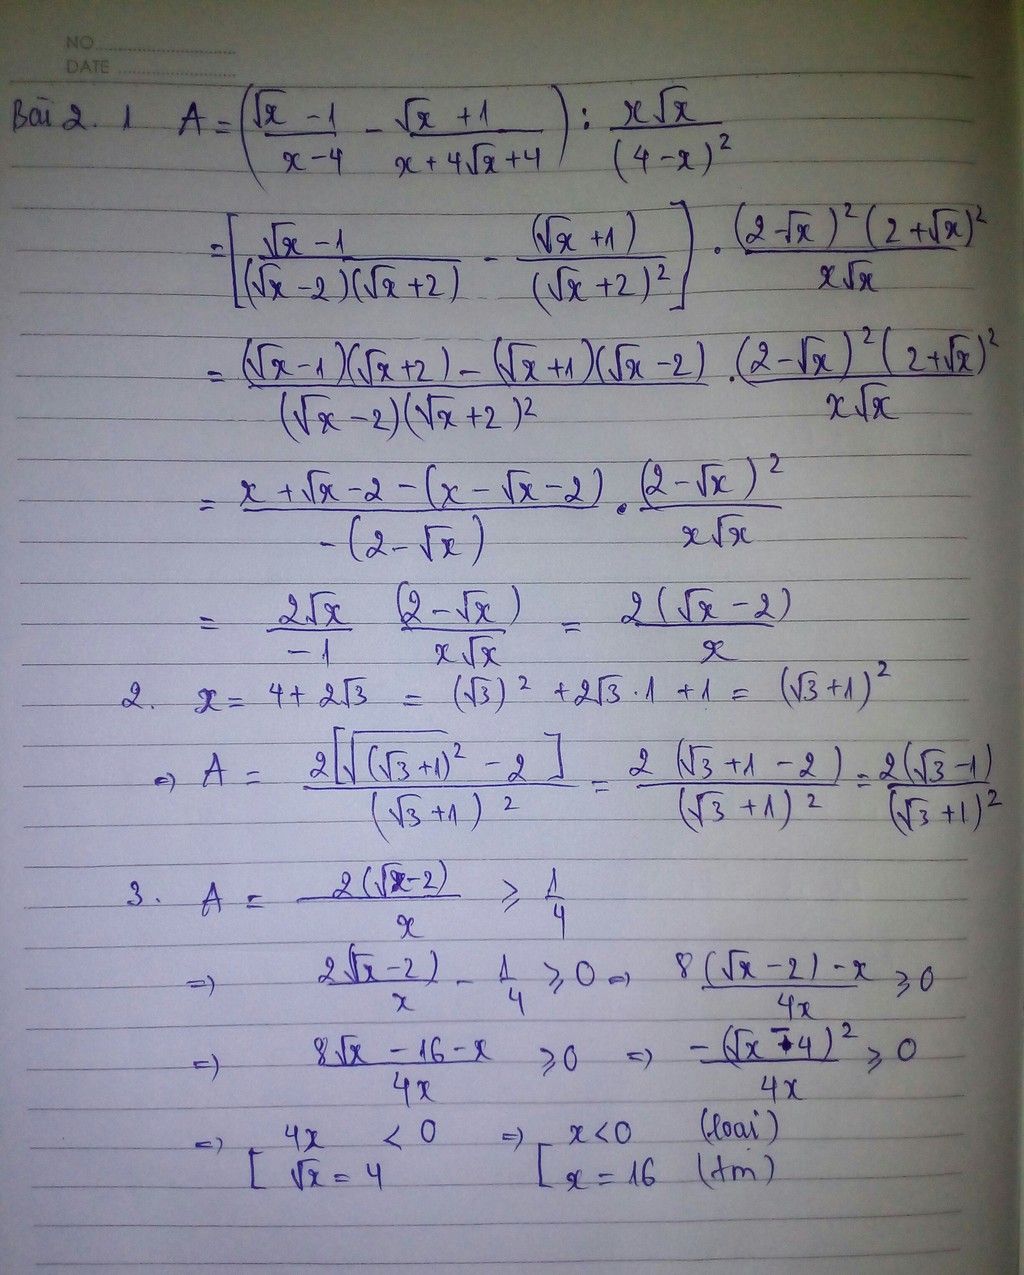 NO
DATE
Bài 2. 1 A = ((√x - 1)/(x - 4) - (√x + 1)/(x + 4√x + 4)) : (x√x)/((4 - x)²)
= [(√x - 1)/((√x - 2)(√x + 2)) - (√x + 1)/((√x + 2)²)] . ((2 - √x)²(2 + √x)²)/(x√x)
= ((√x - 1)(√x + 2) - (√x + 1)(√x - 2))/((√x - 2)(√x + 2)²) . ((2 - √x)²(2 + √x)²)/(x√x)
= (x + √x - 2 - (x - √x - 2))/(-(2 - √x)) . ((2 - √x)²)/(x√x)
= (2√x)/(-1) (2 - √x)/(x√x) = (2(√x - 2))/x
2. x = 4 + 2√3 = (√3)² + 2√3 . 1 + 1 = (√3 + 1)²
=> A = (2[√((√3 + 1)²) - 2])/((√3 + 1)²) = (2(√3 + 1 - 2))/((√3 + 1)²) = (2(√3 - 1))/((√3 + 1)²)
3. A = (2(√x - 2))/x ≥ 1/4
=> (2(√x - 2))/x - 1/4 ≥ 0 => (8(√x - 2) - x)/(4x) ≥ 0
=> (8√x - 16 - x)/(4x) ≥ 0 => (-(√x - 4)²)/(4x) ≥ 0
=> [ 4x < 0 => [ x < 0 (loại)
√x = 4 x = 16 (tm)